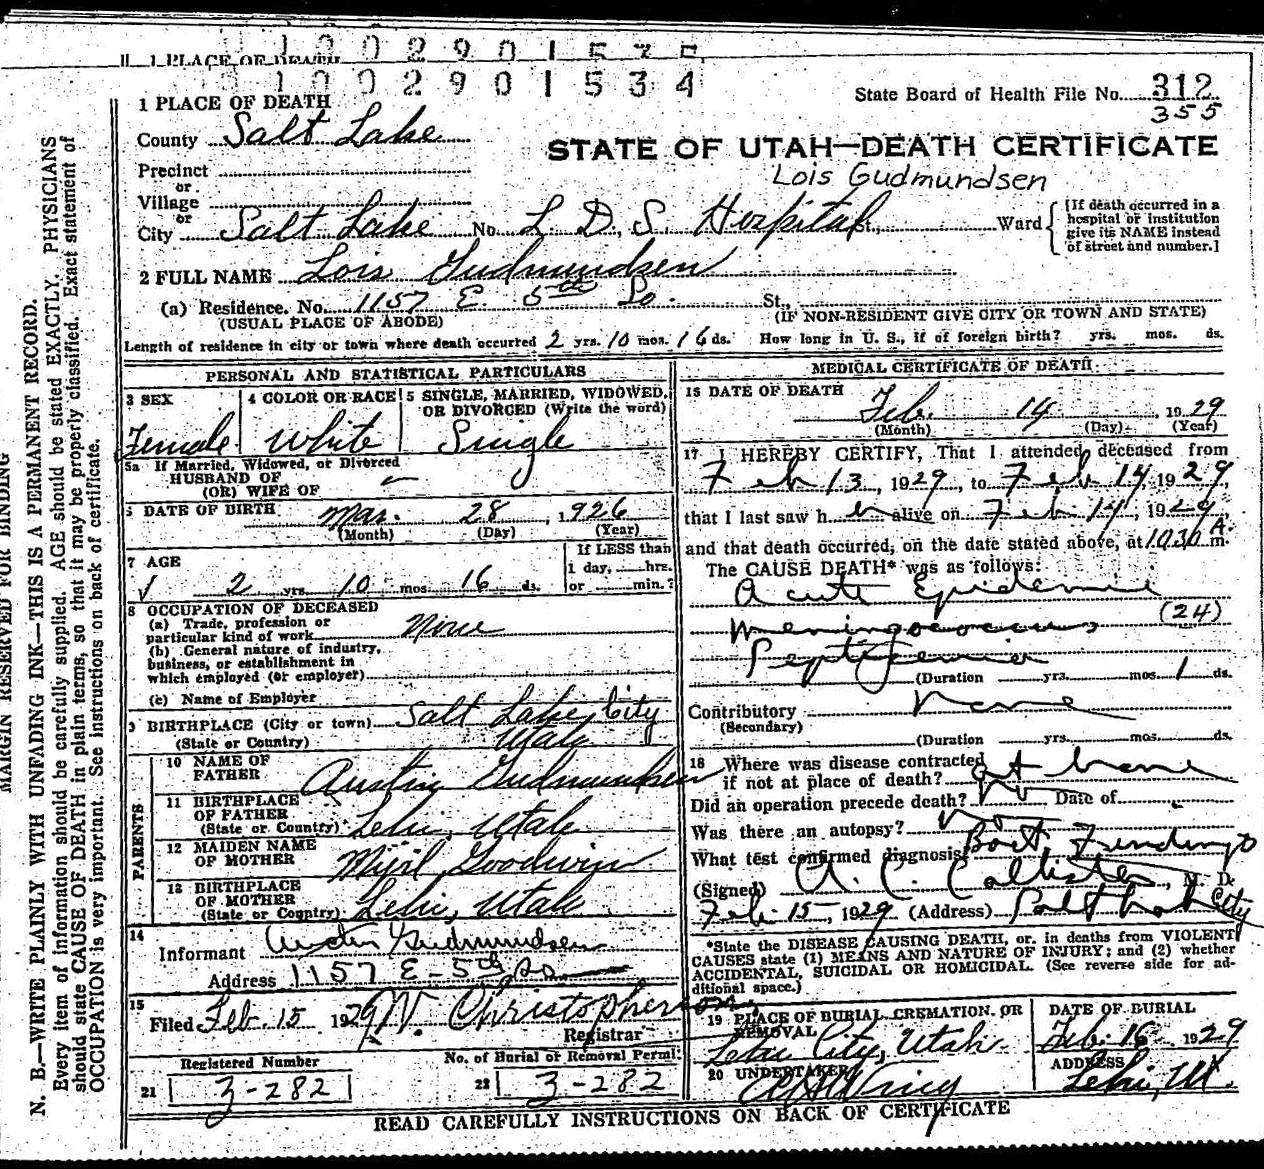 1 PLACE OF DEATH
1 0 0 2 9 0 1 5 3 5
1 0 0 2 9 0 1 5 3 4
1 PLACE OF DEATH
State Board of Health File No. 312
355
County Salt Lake
STATE OF UTAH—DEATH CERTIFICATE
Lois Gudmundsen
Precinct
or
Village
or
City Salt Lake No. L. D. S. Hospital St., Ward
[If death occurred in a hospital or institution give its NAME instead of street and number.]
2 FULL NAME Lois Gudmundsen
(a) Residence. No. 1157 E. 5th So. St.,
(USUAL PLACE OF ABODE) (IF NON-RESIDENT GIVE CITY OR TOWN AND STATE)
Length of residence in city or town where death occurred 2 yrs. 10 mos. 16 ds. How long in U. S., if of foreign birth? yrs. mos. ds.
PERSONAL AND STATISTICAL PARTICULARS
3 SEX 4 COLOR OR RACE 5 SINGLE, MARRIED, WIDOWED, OR DIVORCED (Write the word)
Female White Single
5a If Married, Widowed, or Divorced
HUSBAND OF
(OR) WIFE OF
6 DATE OF BIRTH Mar. 28, 1926
(Month) (Day) (Year)
7 AGE
2 yrs. 10 mos. 16 ds.
If LESS than
1 day, hrs.
or min.?
8 OCCUPATION OF DECEASED
(a) Trade, profession or
particular kind of work None
(b) General nature of industry,
business, or establishment in
which employed (or employer)
(c) Name of Employer
9 BIRTHPLACE (City or town) Salt Lake City
(State or Country) Utah
PARENTS
10 NAME OF
FATHER Austin Gudmundsen
11 BIRTHPLACE
OF FATHER
(State or Country) Lehi, Utah
12 MAIDEN NAME
OF MOTHER Goodwin
13 BIRTHPLACE
OF MOTHER
(State or Country) Lehi, Utah
14
Informant Austin Gudmundsen
Address 1157 E - 5th So
15
Filed Feb. 15 1929 Christopherson
Registrar
Registered Number
21 3-282
No. of Burial or Removal Permit
22 3-282
MEDICAL CERTIFICATE OF DEATH
16 DATE OF DEATH
Feb. 14, 1929
(Month) (Day) (Year)
17 I HEREBY CERTIFY, That I attended deceased from
Feb 13, 1929, to Feb 14, 1929,
that I last saw her alive on Feb 14, 1929,
and that death occurred, on the date stated above, at 1030 A m.
The CAUSE DEATH* was as follows:
Acute Epidemic
Meningococcus (24)
Septicemia
(Duration yrs. mos. 1 ds.
Contributory None
(Secondary)
(Duration yrs. mos. ds.
18 Where was disease contracted
if not at place of death? at home
Did an operation precede death? No Date of
Was there an autopsy? No
What test confirmed diagnosis? Bact Findings
(Signed) A. C. Callister, M. D.
Feb. 15, 1929 (Address) Salt Lake City
*State the DISEASE CAUSING DEATH, or in deaths from VIOLENT
CAUSES state (1) MEANS AND NATURE OF INJURY; and (2) whether
ACCIDENTAL, SUICIDAL OR HOMICIDAL. (See reverse side for ad-
ditional space.)
19 PLACE OF BURIAL, CREMATION, OR
REMOVAL
Lehi City, Utah
DATE OF BURIAL
Feb. 16 1929
20 UNDERTAKER
ADDRESS
Lehi, Ut.
READ CAREFULLY INSTRUCTIONS ON BACK OF CERTIFICATE
MARGIN RESERVED FOR BINDING
N. B.—WRITE PLAINLY WITH UNFADING INK—THIS IS A PERMANENT RECORD.
Every item of information should be carefully supplied. AGE should be stated EXACTLY. PHYSICIANS
should state CAUSE OF DEATH in plain terms, so that it may be properly classified. Exact statement of
OCCUPATION is very important. See instructions on back of certificate.